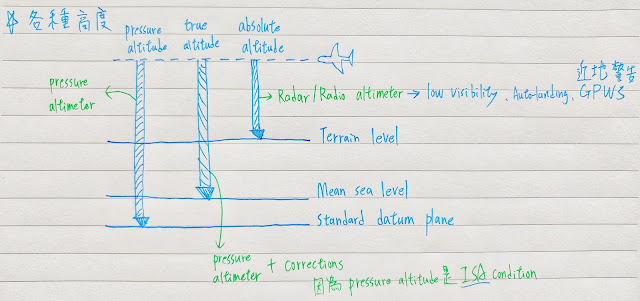 各種高度
pressure altitude
true altitude
absolute altitude
pressure altimeter
Radar/Radio altimeter → low visibility、Auto-landing、GPWS
近地警告
Terrain level
Mean sea level
Standard datum plane
pressure altimeter + corrections
因為 pressure altitude 是 ISA condition